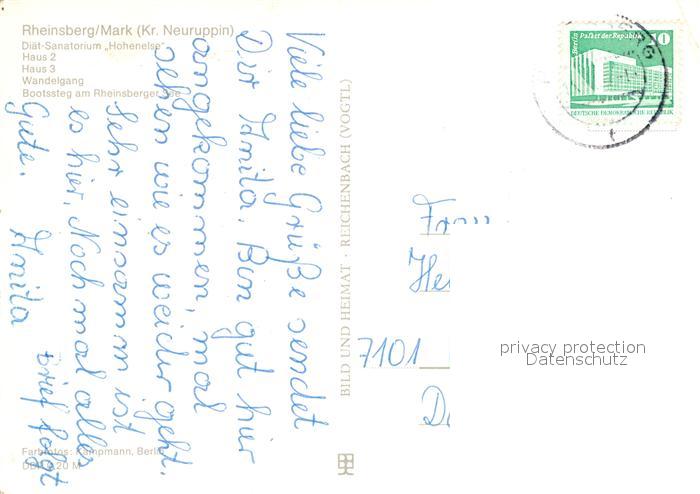 Rheinsberg/Mark (Kr. Neuruppin)
Diät-Sanatorium „Hohenelse“
Haus 2
Haus 3
Wandelgang
Bootssteg am Rheinsberger See
Viele liebe Grüße sendet
Dir Anita. Bin gut hier
angekommen, mal
sehen wie es weider geht.
Sehr einsamm ist
es hier. Noch mal alles
Gute. Anita
Brief folgt
Farbfotos: Kampmann, Berlin
BILD UND HEIMAT · REICHENBACH (VOGTL)
Berlin Palast der Republik
DEUTSCHE DEMOKRATISCHE REPUBLIK
Frau
7101
privacy protection
Datenschutz